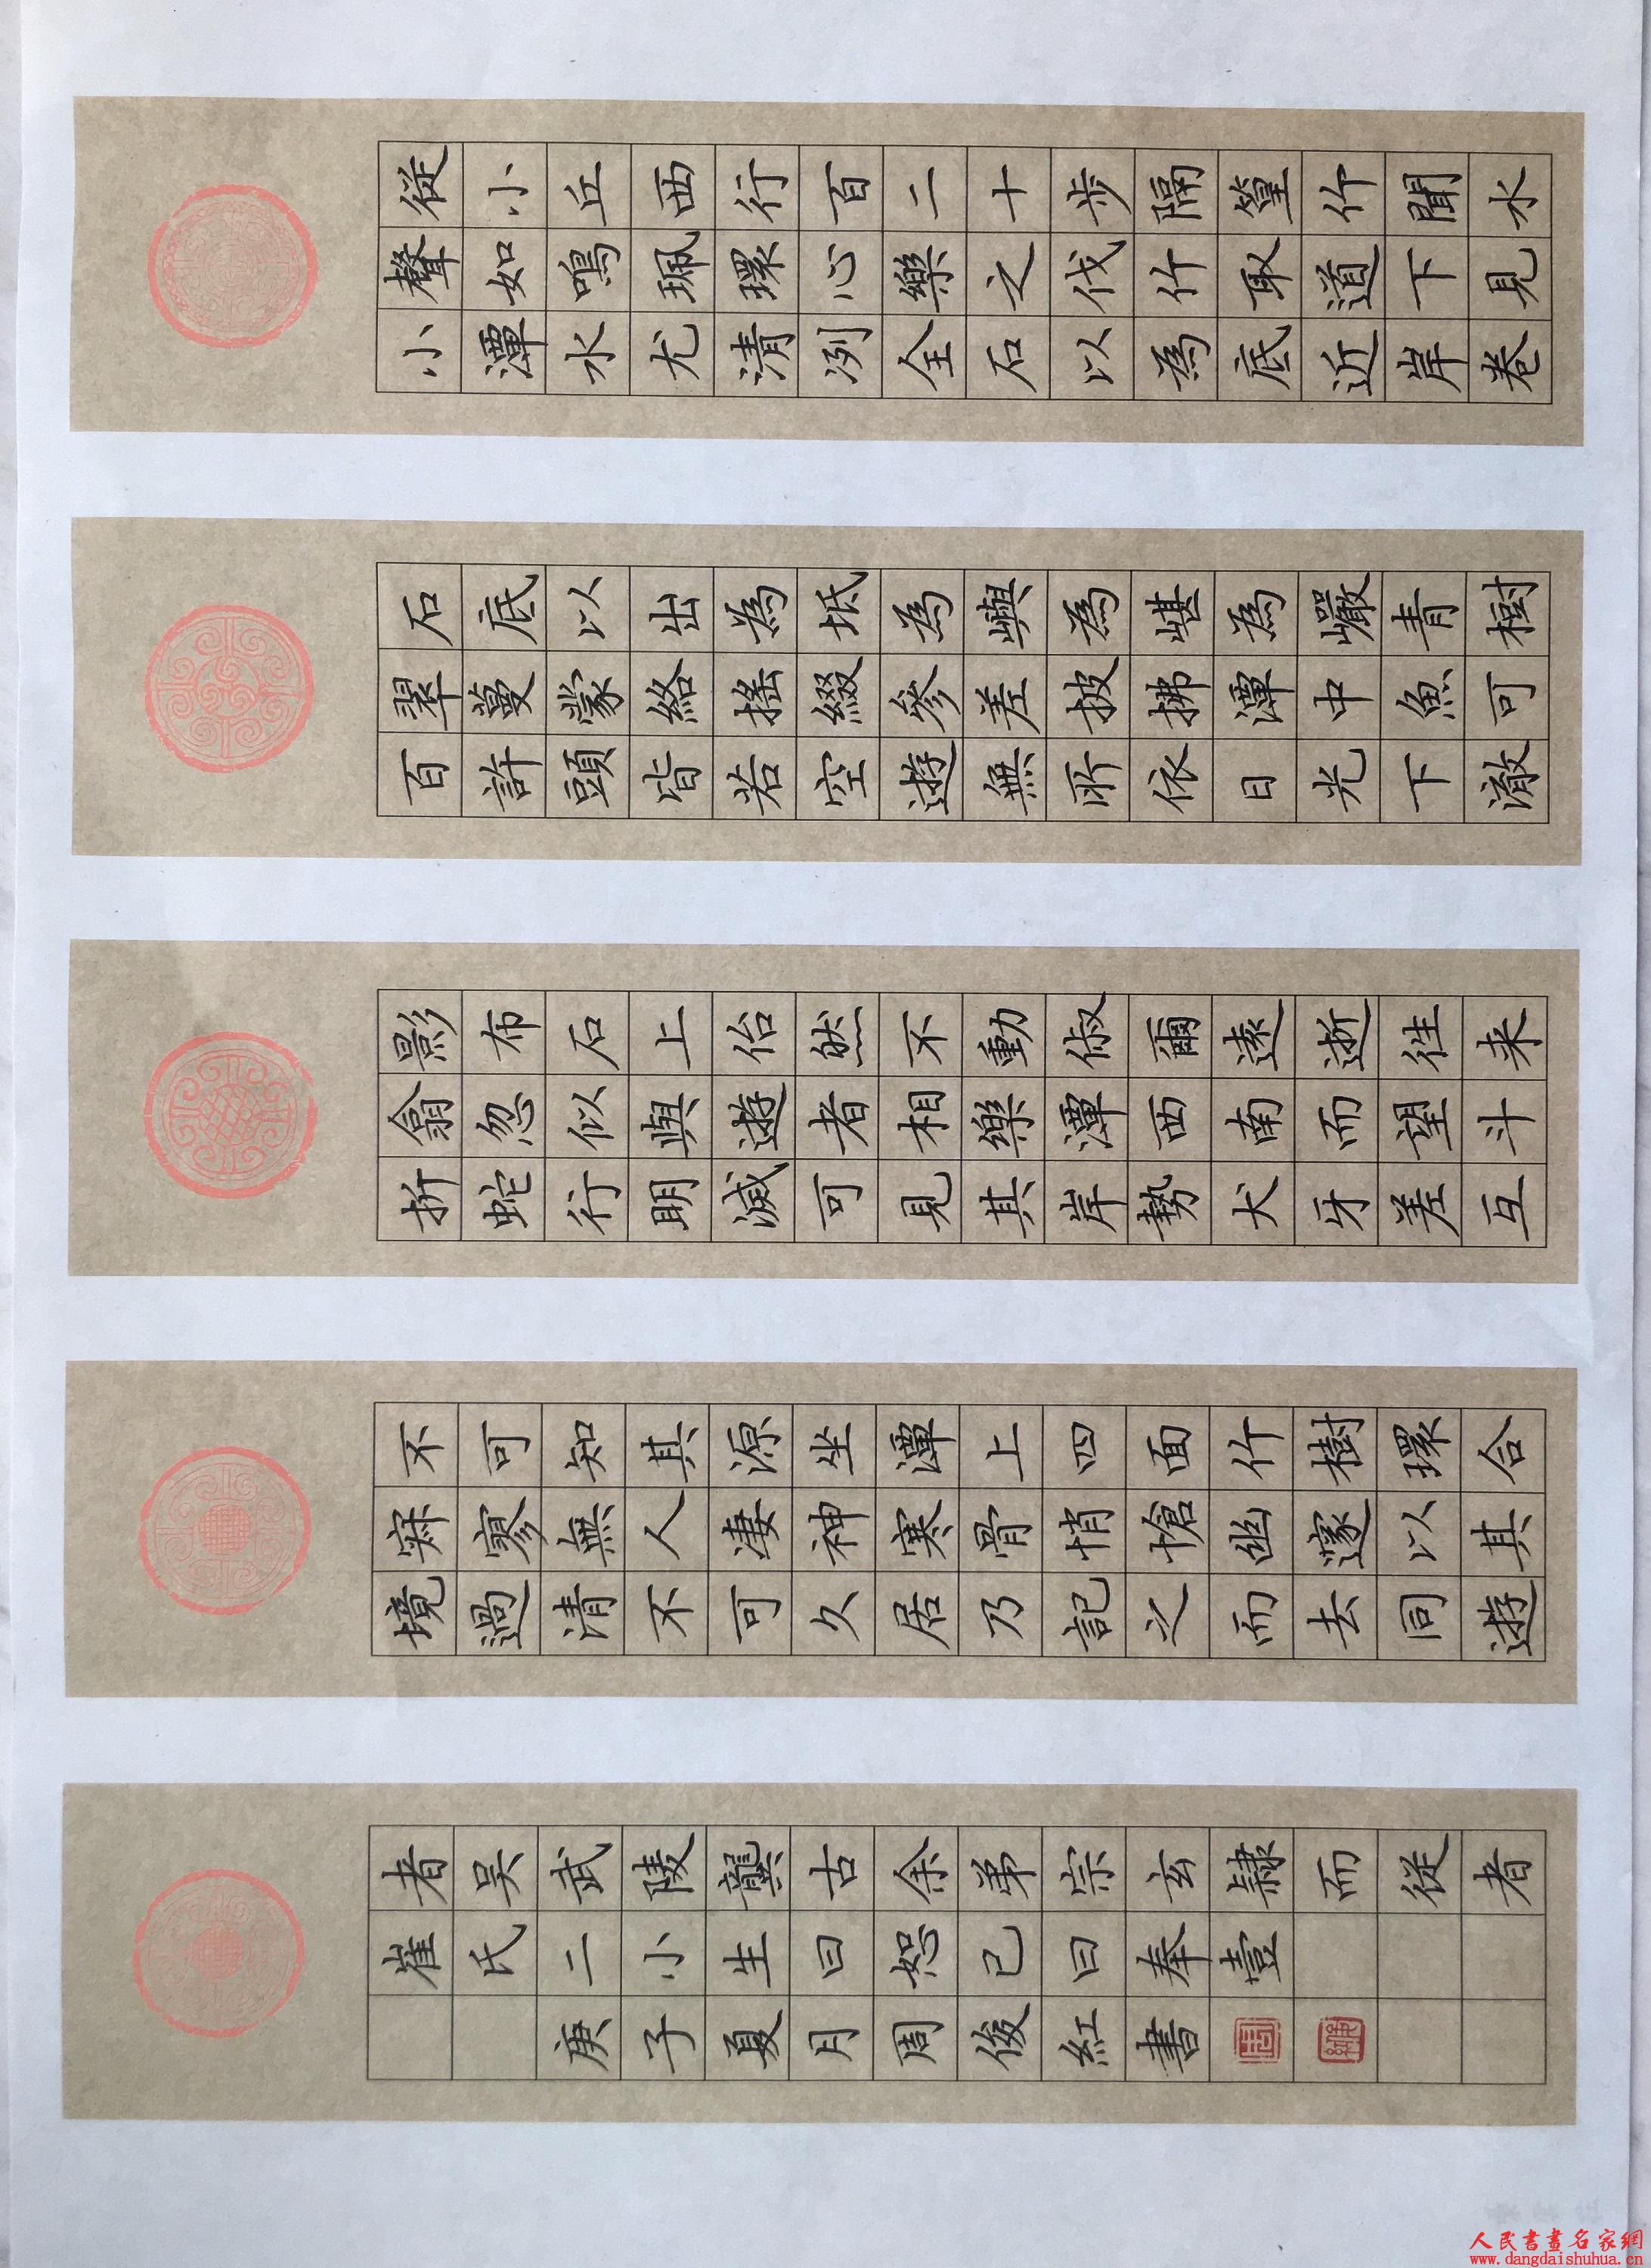 從小丘西行百二十步隔篁竹聞水
聲如鳴珮環心樂之伐竹取道下見
小潭水尤清冽全石以為底近岸卷
石底以出為坻為嶼為嵁為巖青樹
翠蔓蒙絡搖綴參差披拂潭中魚可
百許頭皆若空遊無所依日光下澈
影布石上佁然不動俶爾遠逝往来
翕忽似與遊者相樂潭西南而望斗
折蛇行明滅可見其岸勢犬牙差互
不可知其源坐潭上四面竹樹環合
寂寥無人凄神寒骨悄愴幽邃以其
境過清不可久居乃記之而去同遊
者吳武陵龔古余弟宗玄隸而從者
崔氏二小生曰恕己曰奉壹
庚子夏月周俊紅書
人民書畫名家網
www.dangdaishuhua.cn